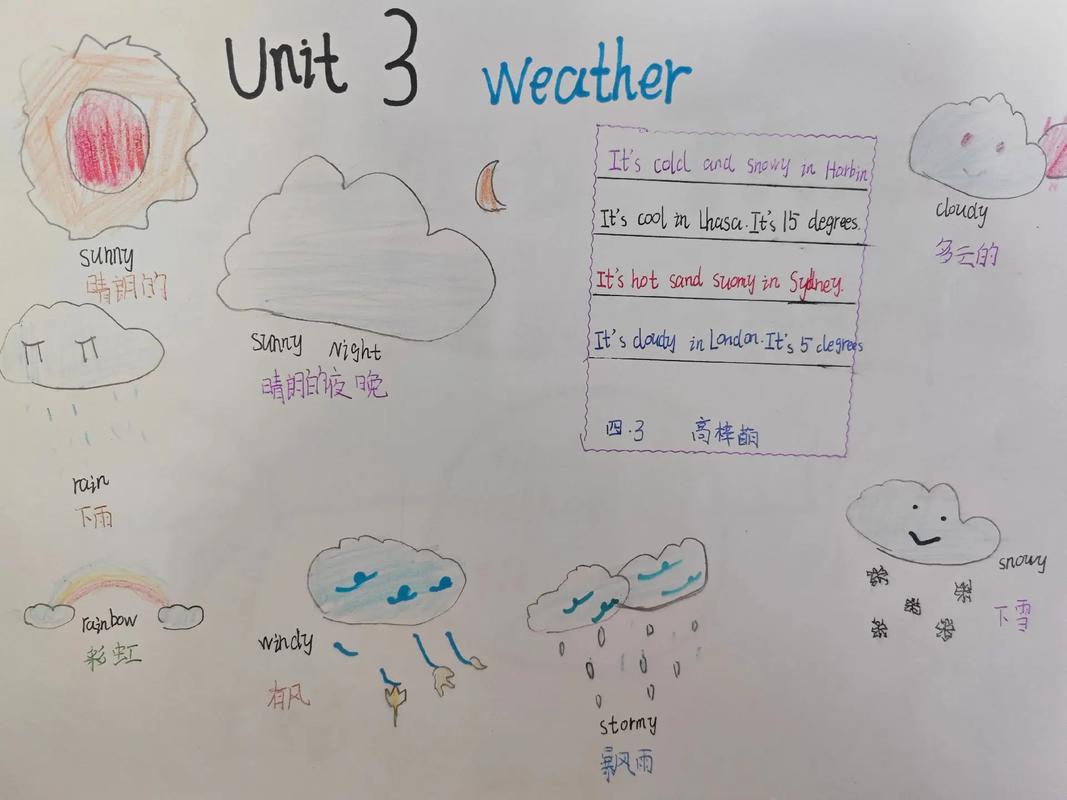 Unit 3 Weather
It's cold and snowy in Harbin
It's cool in Lhasa. It's 15 degrees.
It's hot sand suomy in Sydney.
It's cloudy in London. It's 5 degrees
四.3 高梓萌
sunny
晴朗的
sunny Night
晴朗的夜晚
cloudy
多云的
rain
下雨
rainbow
彩虹
windy
有风
stormy
暴风雨
snowy
下雪